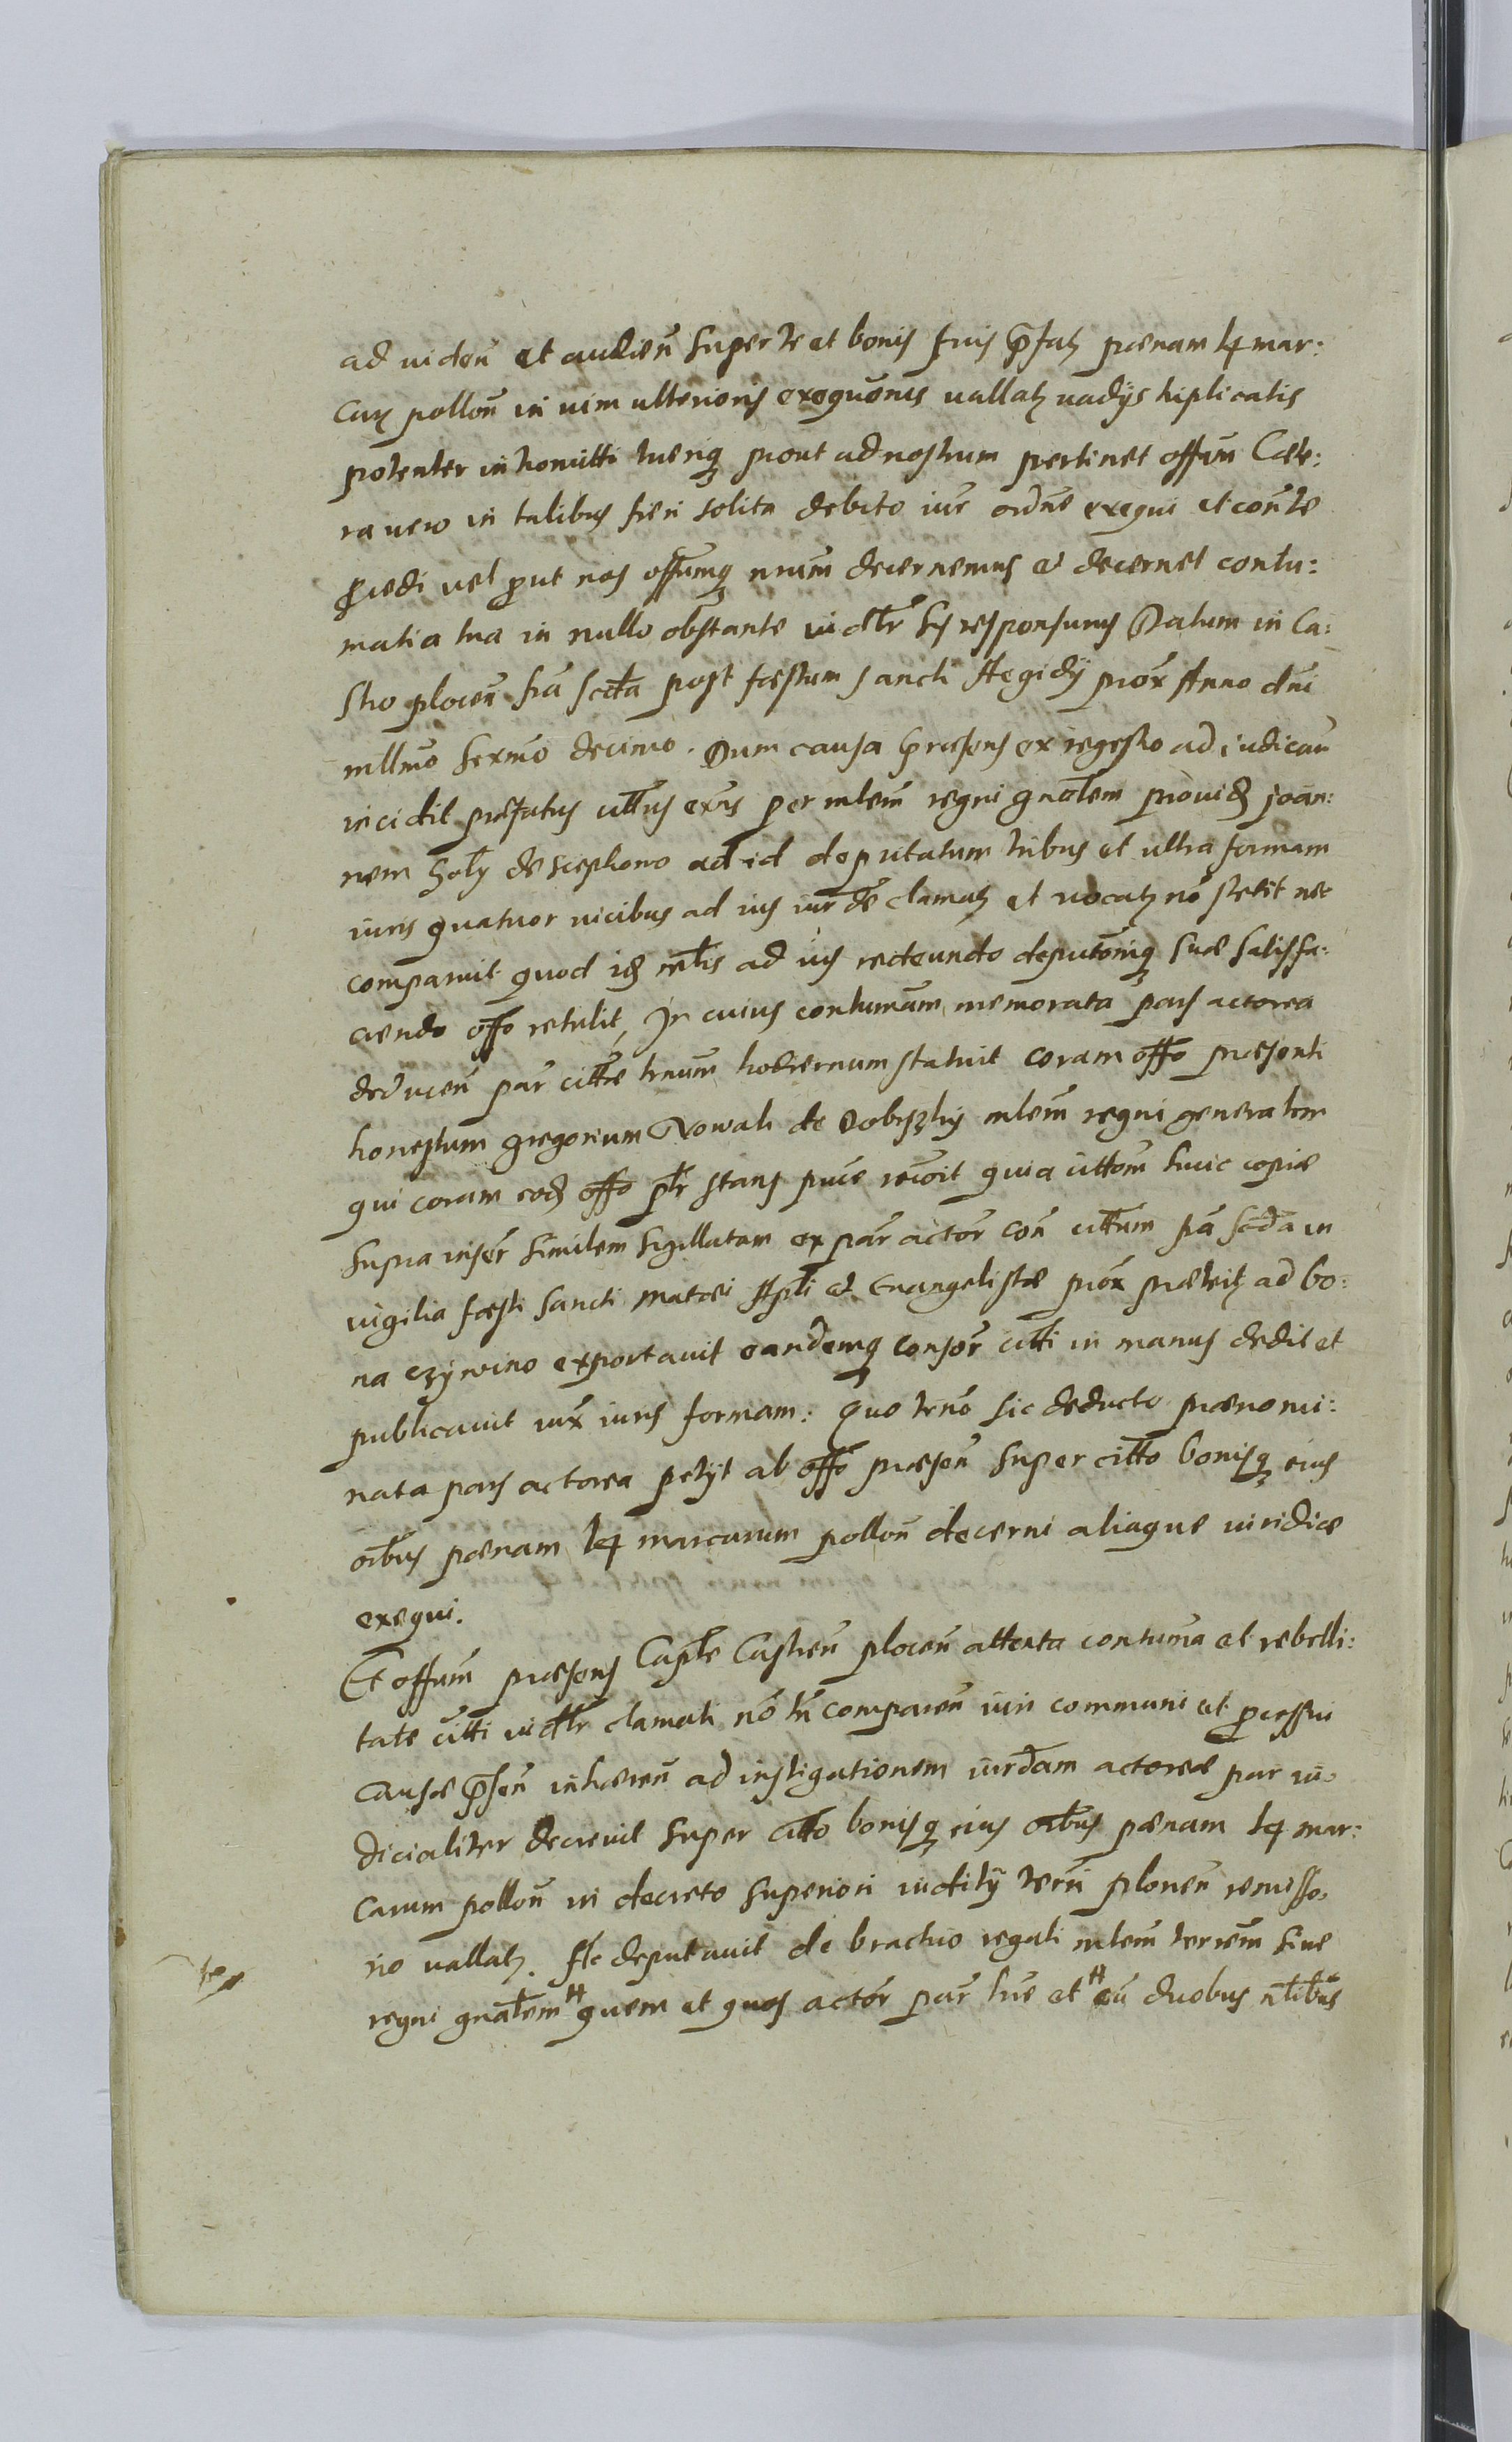 ad viden et audien super te et bonis tuis pfatz pœnam 14 mar:
carz pollon in vim ulterioris exequonis vallatz vadijs triplicatis
potenter intromitti tueriq prout ad nostrum pertinet offum Cæte:
ra vero in talibus fieri solita debito iur ordne exequi et conte
pcedi vel put nos offumq nrum decernemus et decernet contu:
matia tua in nullo obstante iudlr sis responsurus Datum in Ca:
stro plocen fria scda post fæstum Sancti Aegidij prox Anno dni
millmo sexmo decimo. Dum causa præsens ex regestro ad iudican
incidit præfatus cittus exns per mlem regni gnalem provid Joan:
nem de Szczephono ad id deputatum tribus et ultra formam
iuris quatuor vicibus ad ius iur de clamatz et vocatz no stetit nec
comparuit quod id mlis ad ius redeundo deputoniq suæ satisfa:
ciendo offo retulit, In cuius contumam memorata pars actorea
deducen par cittæ trnum hodiernum statuit coram offo præsenti
honestum Gregorium Nowak de Dobrszky mlem regni generalem
qui coram eod offo plr stans puce recoit quia cittom huic copiæ
supra inser similem sigillatam ex par actor con cittum fia scda in
vigilia fæsti Sancti Matæi Apli et Evangelistæ prox præteritz ad bo:
na Czÿwino exportavit eandemq consor citti in manus dedit et
publicavit iux iuris formam: Quo trno sic deducto prænomi:
nata pars actorea petyt ab offo præsen super citto bonisq eius
oibus pœnam 14 marcarum pollon decerni aliaque iuridice
exequi.
Et offum præsens Caple Castren plocen attenta contuma et rebelli:
tate citti iudlr clamati no tn comparen iuri communi et pcessui
Causæ psen inhæren ad instigationem iurdam actoreæ par iu:
dicialiter decrevit super citto bonisq eius oibus pœnam 14 mar:
carum pollon in decreto superiori iuditij terri plonen remisso:
rio vallatz. Ac deputavit de brachio regali mlem terrem sive
regni gnalem # quem et quos actor par hue et # cu duobus nlibus